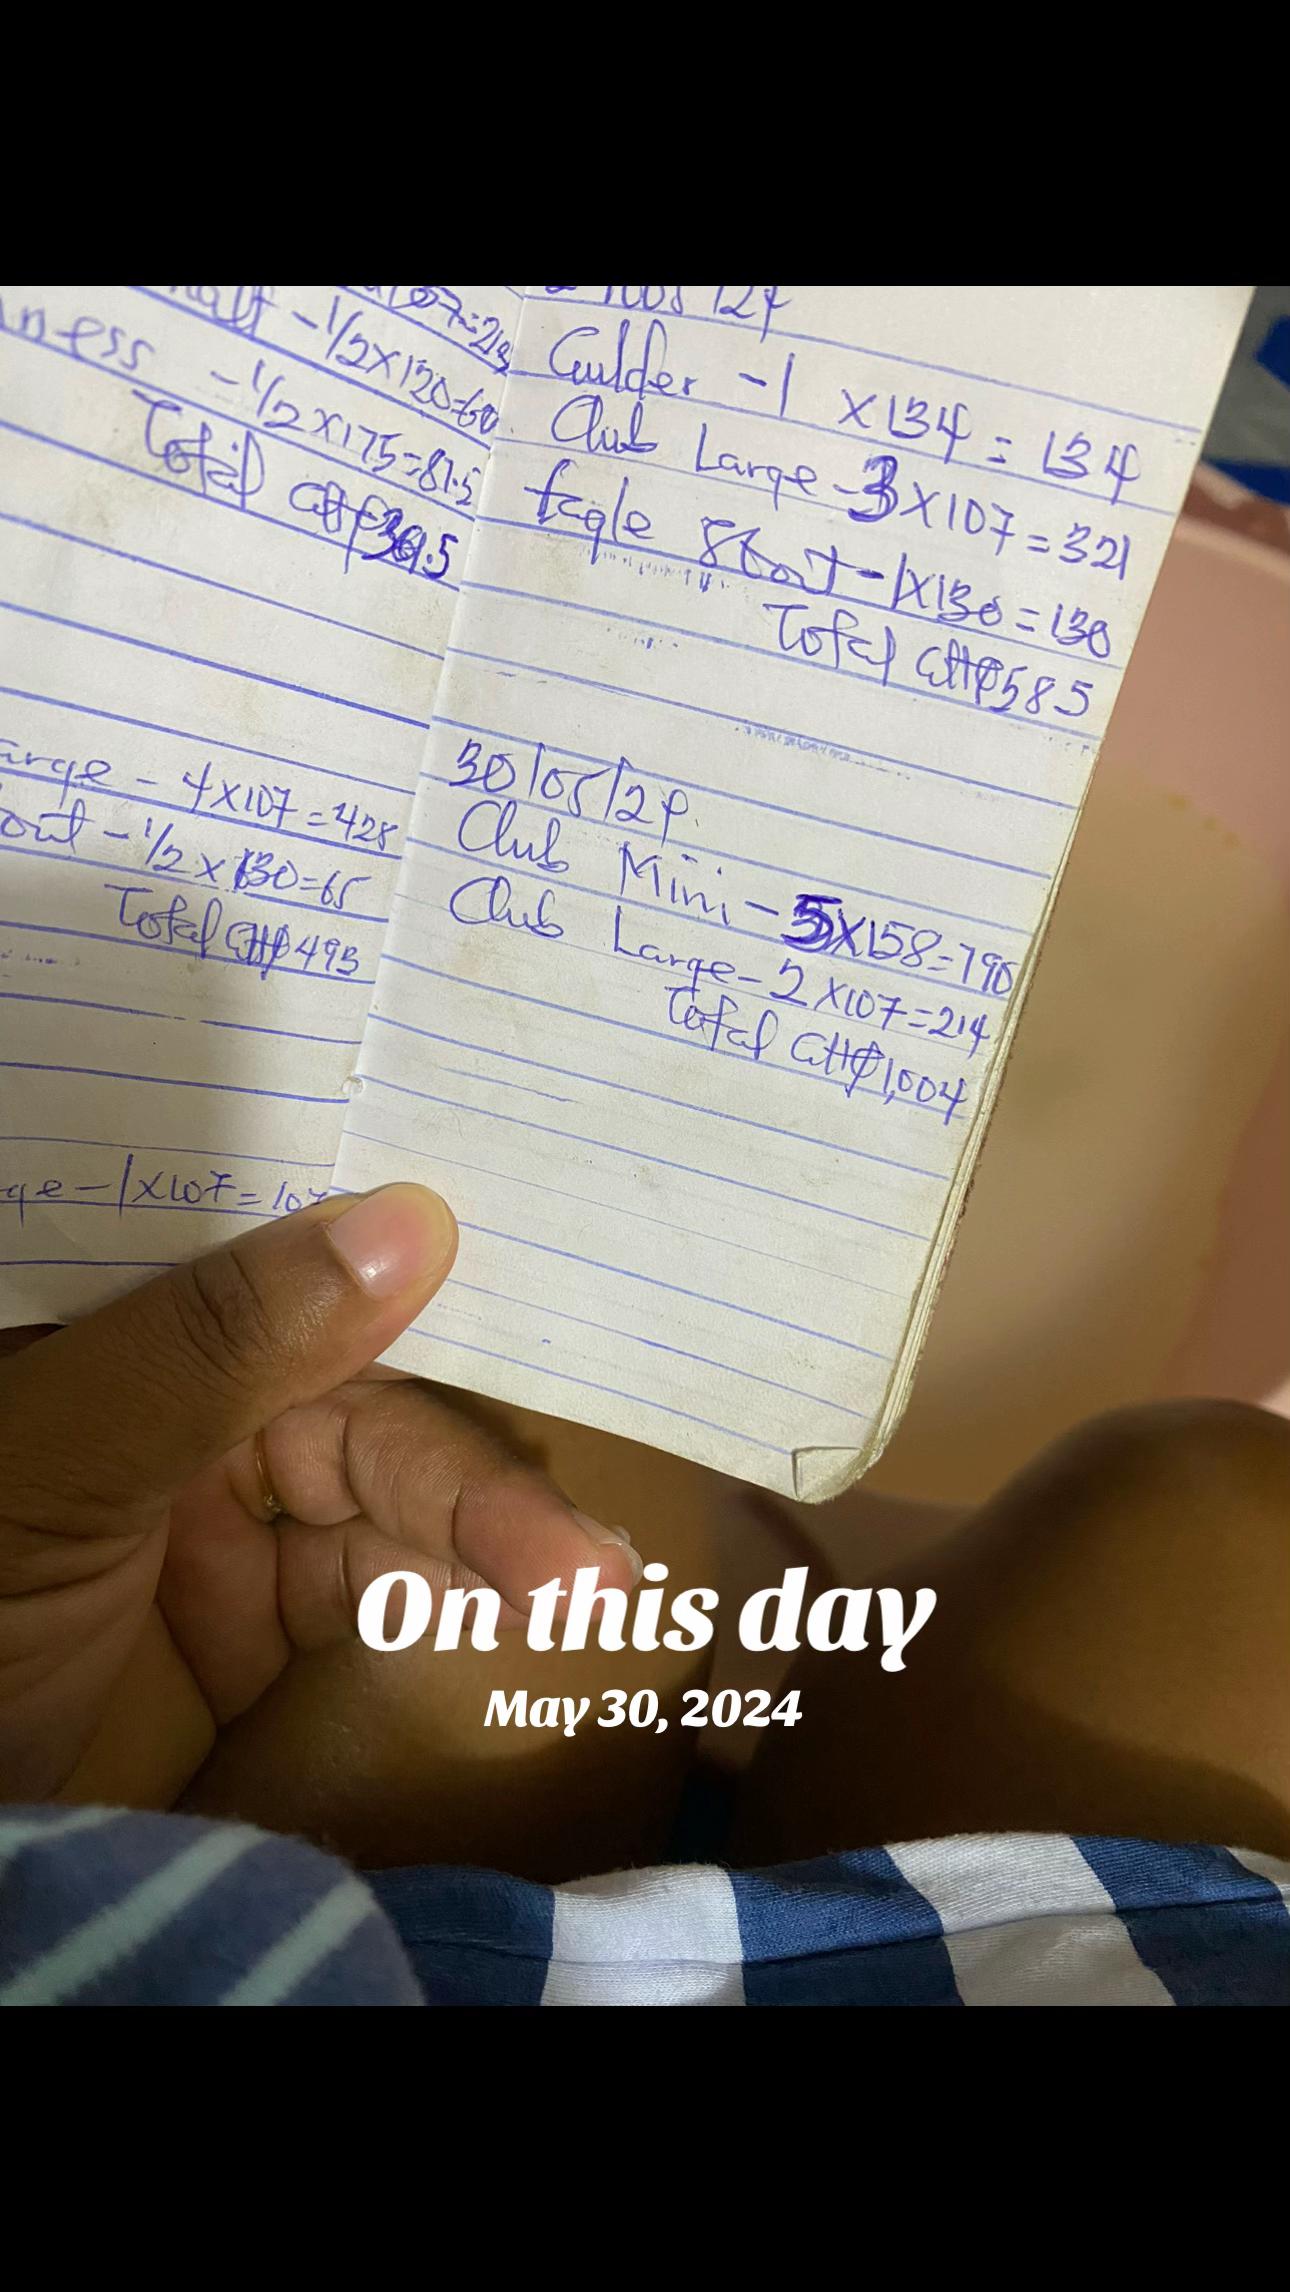 =214
-1/2X120=60
ness -1/2X175=87.5
Total GH¢361.5
arge - 4X107=428
out -1/2X130=65
Total GH¢493
ge -1X107=107
Gulder -1 X134=134
Club Large -3X107=321
Eagle Stout -1X130=130
Total GH¢585
30/05/24.
Club Mini -5X158=790
Club Large -2X107=214
Total GH¢1,004
On this day
May 30, 2024